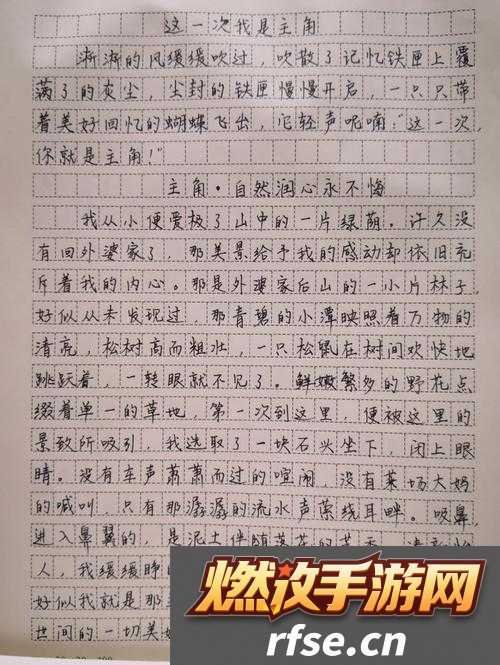 这一次我是主角
淅淅的风缓缓吹过，吹散了记忆铁匣上覆
满了的灰尘，尘封的铁匣慢慢开启，一只只带
着美好回忆的蝴蝶飞出，它轻声呢喃："这一次，
你就是主角！"
主角·自然润心永不悔
我从小便爱极了山中的一片绿荫。许久没
有回外婆家了，那美景给予我的感动却依旧充
斥着我的内心。那是外婆家后山的一小片林子，
好似从未发现过，那青碧的小潭映照着万物的
清亮，松树高而粗壮，一只松鼠在树间欢快地
跳跃着，一转眼就不见了。鲜嫩繁多的野花点
缀着单一的草地，第一次到这里，便被这里的
景致所吸引，我选取了一块石头坐下，闭上眼
睛。没有车声萧萧而过的喧闹，没有菜场大妈
的喊叫，只有那潺潺的流水声萦绕耳畔。吸鼻，
进入鼻翼的，是泥土伴随
人，我缓缓睁
好似我就是那
世间的一切美
燃放手游网
rfse.cn